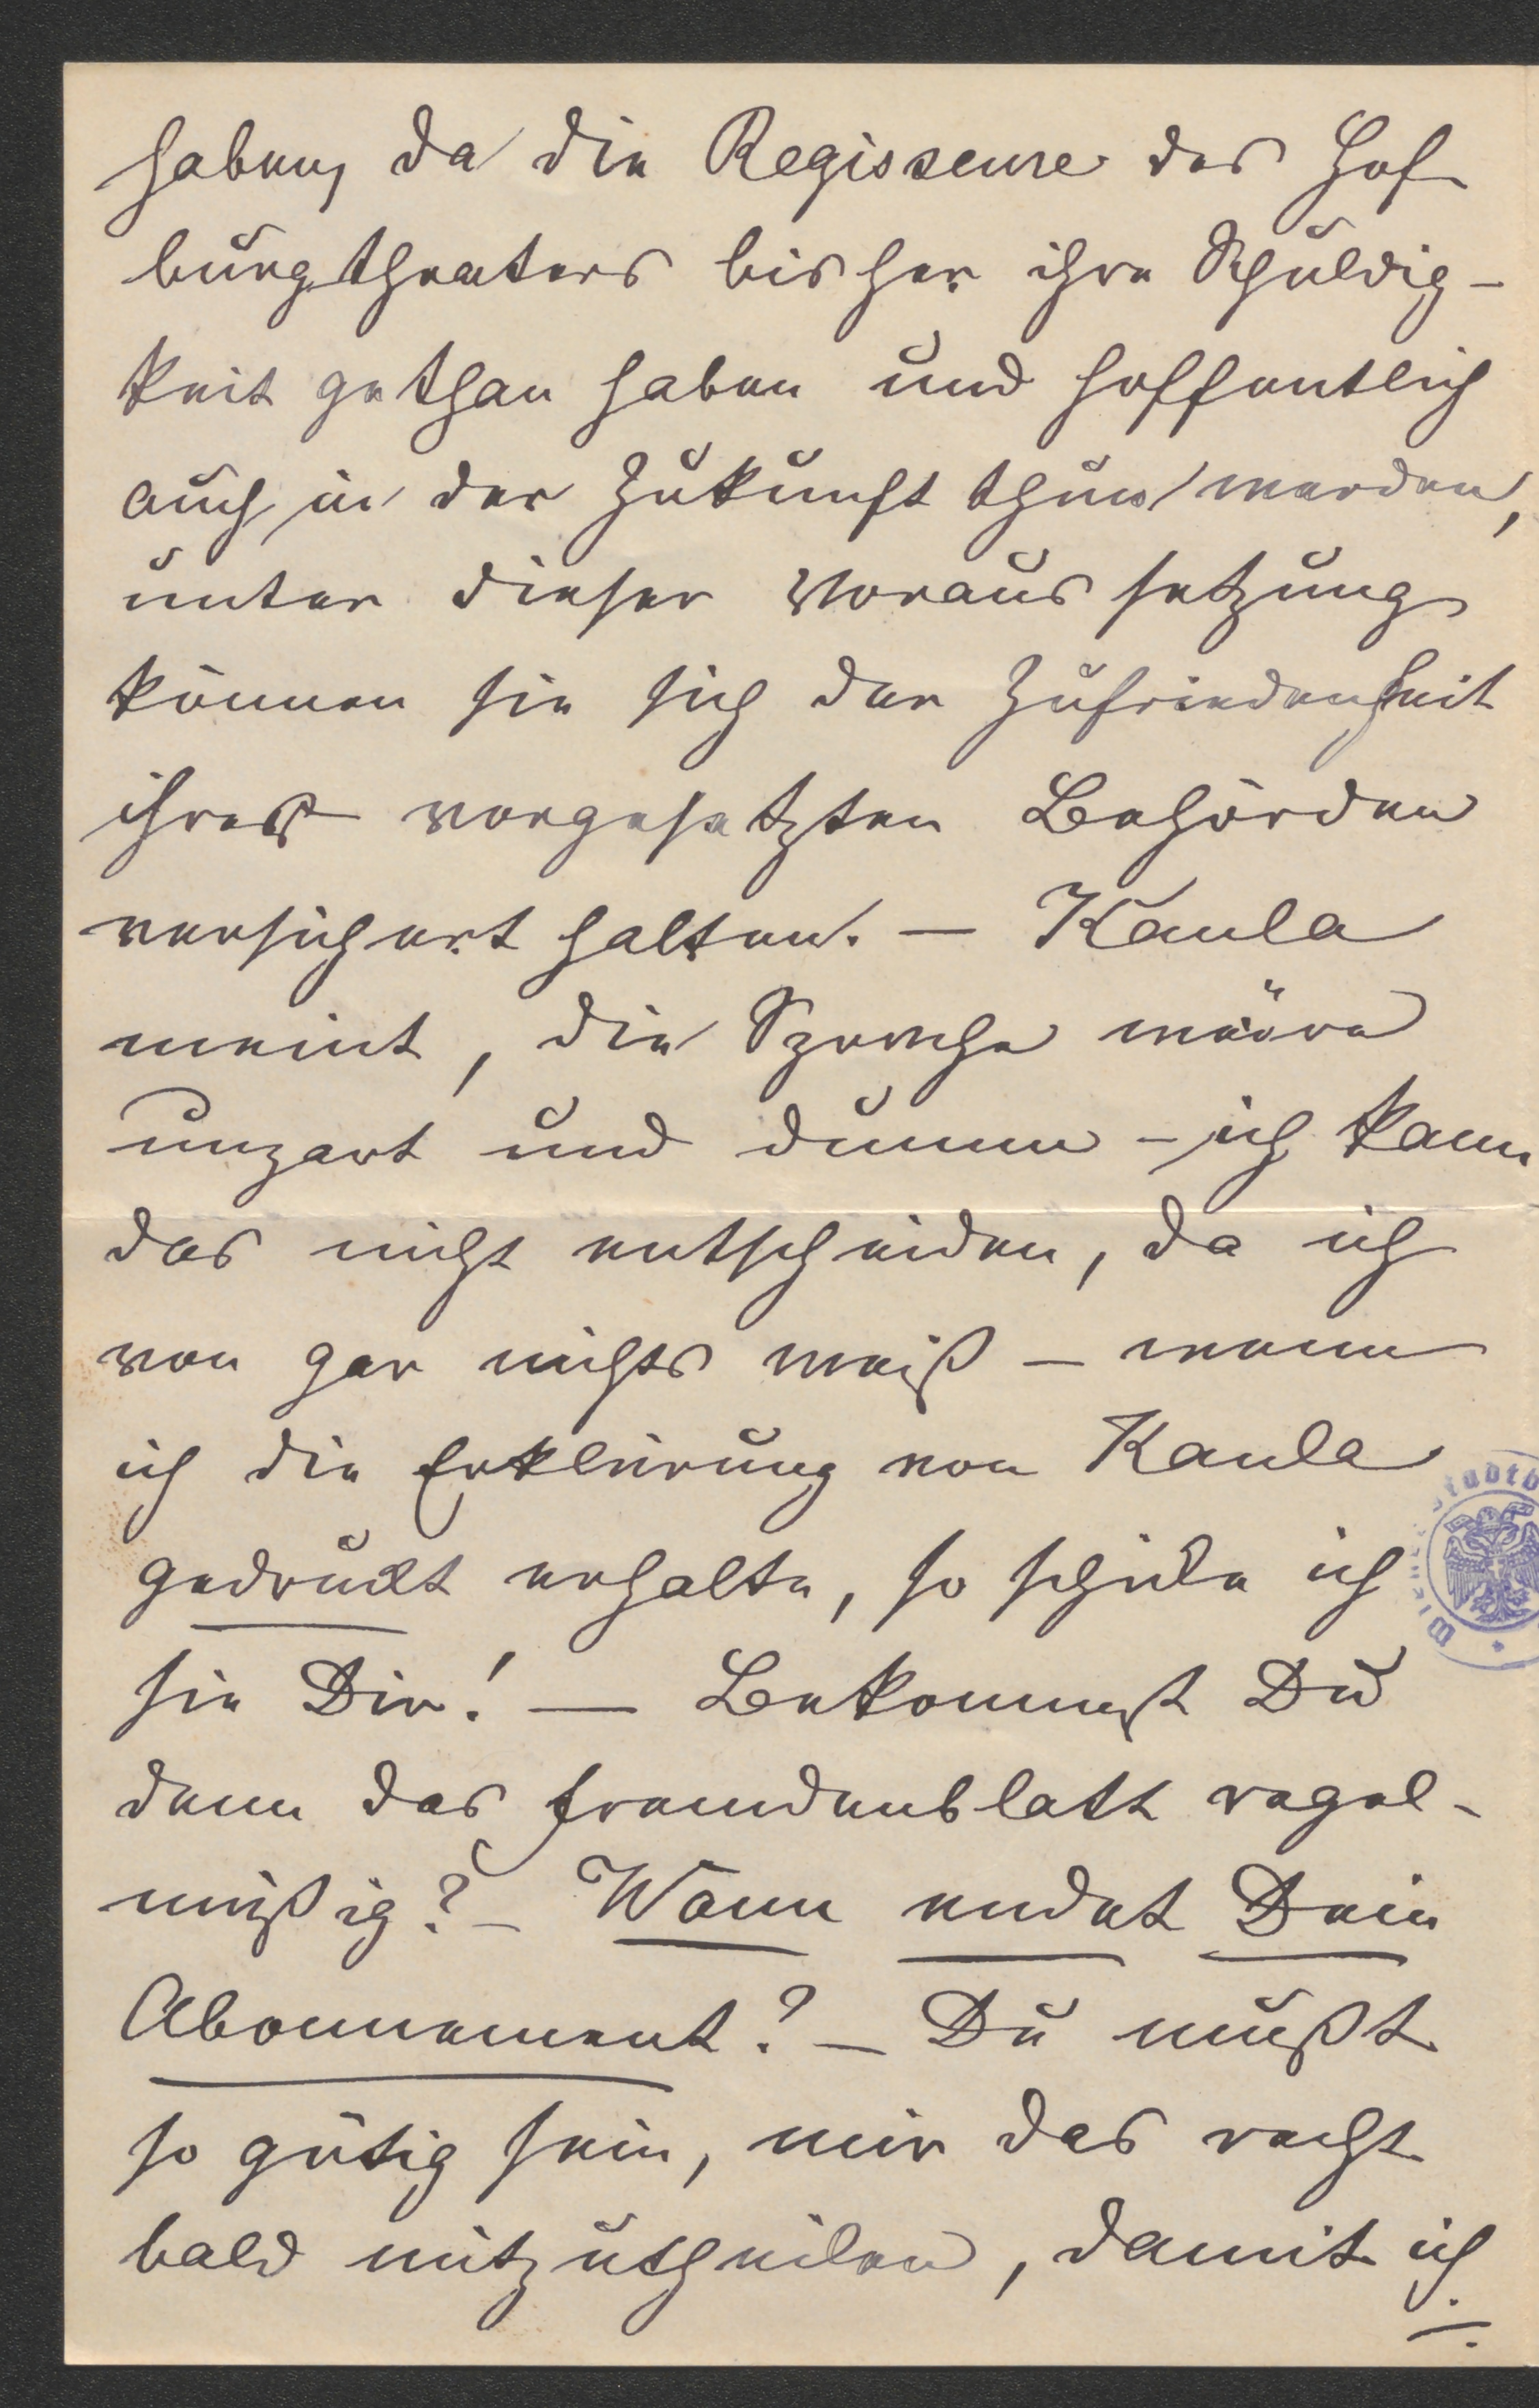 haben, da die Regisseure des Hof
burgtheaters bisher ihre Schuldig-
keit gethan haben und hoffentlich
auch in der Zukunft thun werden,
unter dieser Voraussetzung
können sie sich der Zufriedenheit
ihrer vorgesetzten Behörden
versichert halten. — Kaula
meint, die Sprache wäre
unzart und dumm – ich kann
das nicht entscheiden, da ich
von gar nichts weiß – wenn
ich die Erklärung von Kaula
gedruckt erhalte, so schicke ich
sie Dir! — Bekommst Du
denn das Fremdenblatt regel-
mäßig? – Wann endet Dein
Abonnement? – Du mußt
so gütig sein, mir das recht
bald mitzutheilen, damit ich